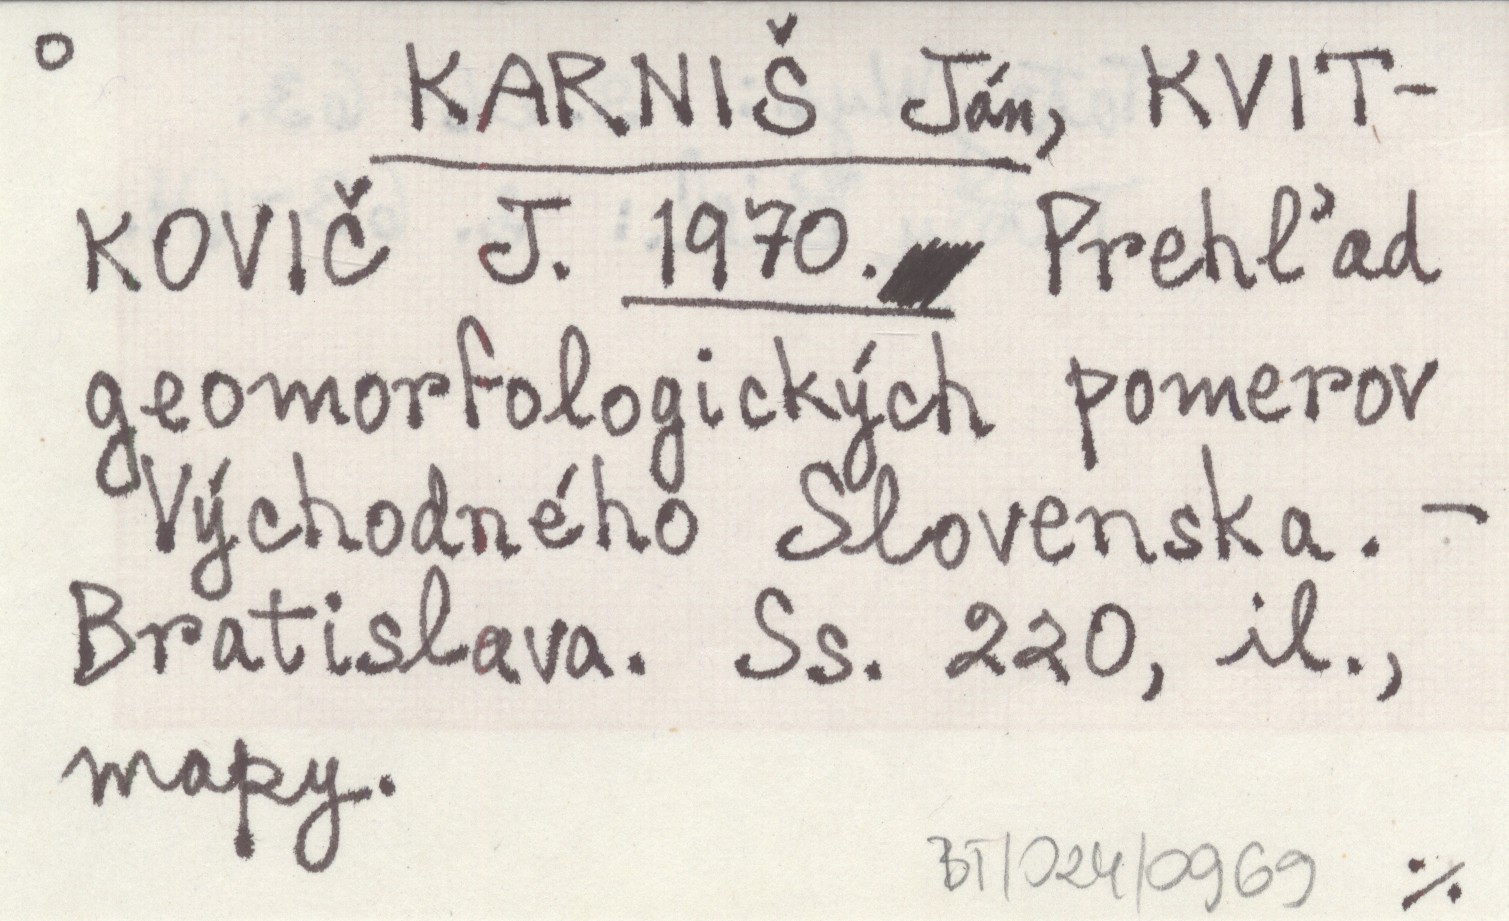 KARNIŠ Ján, KVIT-
KOVIČ J. 1970. Prehl'ad
geomorfologických pomerov
Východného Slovenska. -
Bratislava. Ss. 220, il.,
mapy.
BT/024/0969 ./.